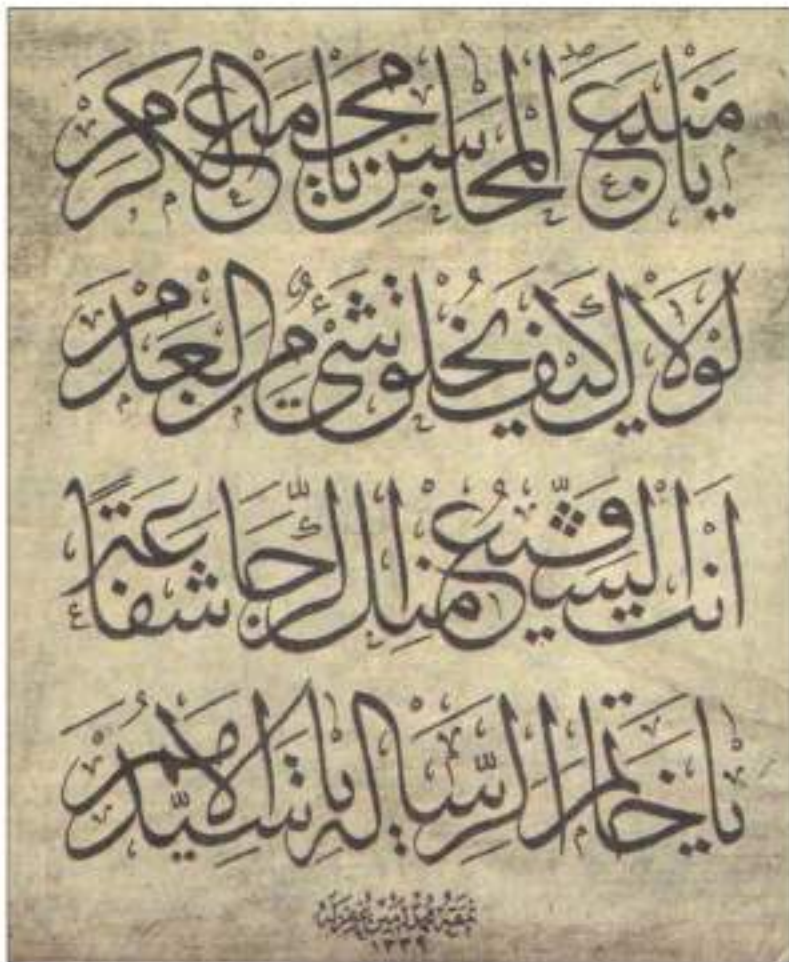 يا منبع المحاسن يا مجمع الكرم
لولاك كيف يخلق شيء من العدم
انت منا الرجا شفاعة
يا خاتم الرسالة يا سيد الامم
نمقه محمد امين غفر له
١٣٣٩